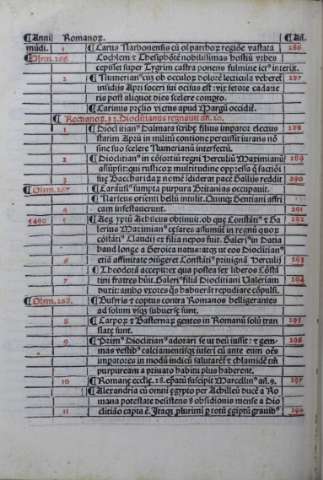 ¶ Anni Romanoꝝ. ¶ Ad.
mūdi. 1 ¶ Carus Narbonensis cū oēm parthoꝝ regiōē vastata 286
¶ Olim. 266. Cochlem & Thesiphōtē nobilissimas hostiū vrbes
cepisset super Tygrim castra ponens fulmine ictus interijt.
2 ¶ Numerianus cū ob oculoꝝ dolorē lectícula veheret 287
insidijs Apri soceri sui occisus est: vix fetore cadaue
ris post aliquot dies scelere compto.
¶ Carinus prelio victus apud Margū occidit.
¶ Romanoꝝ.33.Dioclitianus regnauit añ.20.
1 ¶ Dioclitianus Dalmata scribe filius imperator electus 288
statim Aprū in militū contione percussit iurans nō
sine suo scelere Numerianū interfectū.
2 ¶ Dioclitianus in cōsortiū regni Herculiū Maximianū 289
assūpsit: qui rusticoꝝ multitudine oppressa q̄ factiōi
sue Baccharidaꝝ nomē īdiderat pacē Gallijs reddit 290
¶ Olim.267. ¶ Carausius sumpta purpura Britanias occupauit.
¶ Narseus orienti bellū intulit. Quinqꝫ gentiani affri
4 cam infestauerunt. 291
5460 5 ¶ Aegyptū Achileus obtinuit. ob que Constātius & Ga 292
lerius Maximianus cesares assumūtur in regnū quoꝝ
cōstātius Claudij ex filia nepos fuit. Galerius in Dacia
haud longe a Serdica natus: atqꝫ vt eos Dioclitianus
6 etiā affinitate iūgeret Constātius priuignā Herculij 293
¶ Theodorā accepit: ex qua postea sex liberos Cōstā
tini fratres hūit. Galerius filiā Dioclitiani Valeriam 294
duxit: ambo vxores q̄s habuerāt repudiare cōpulsi.
¶ Olim.268. ¶ Busiris & coptus contra Romanos belligerantes
ad solum vsqꝫ subuerse sunt.
8 ¶ Carpoꝝ & Basternaꝝ gentes in Romanū solū tran 295
slate sunt.
9 ¶ Primus Dioclitianus adorari se vt deū iussit: & gem 296
mas vestibus calciamentisqꝫ inseri cū ante eum oēs
impatores in modū iudicū salutarent & chlamidē tm̄
purpuream a priuato habitu plus haberent.
10 ¶ Romane ecclie.28.epatū suscipit Marcellinus añ.9. 297
¶ Alexandria cū omni egypto per Achilleū duce a Ro
mana potestate desistens 8 obsidionis mense a Dio
11 clitiāo capta ē. Itaqꝫ plurimi per totā egyptū grauibus 298